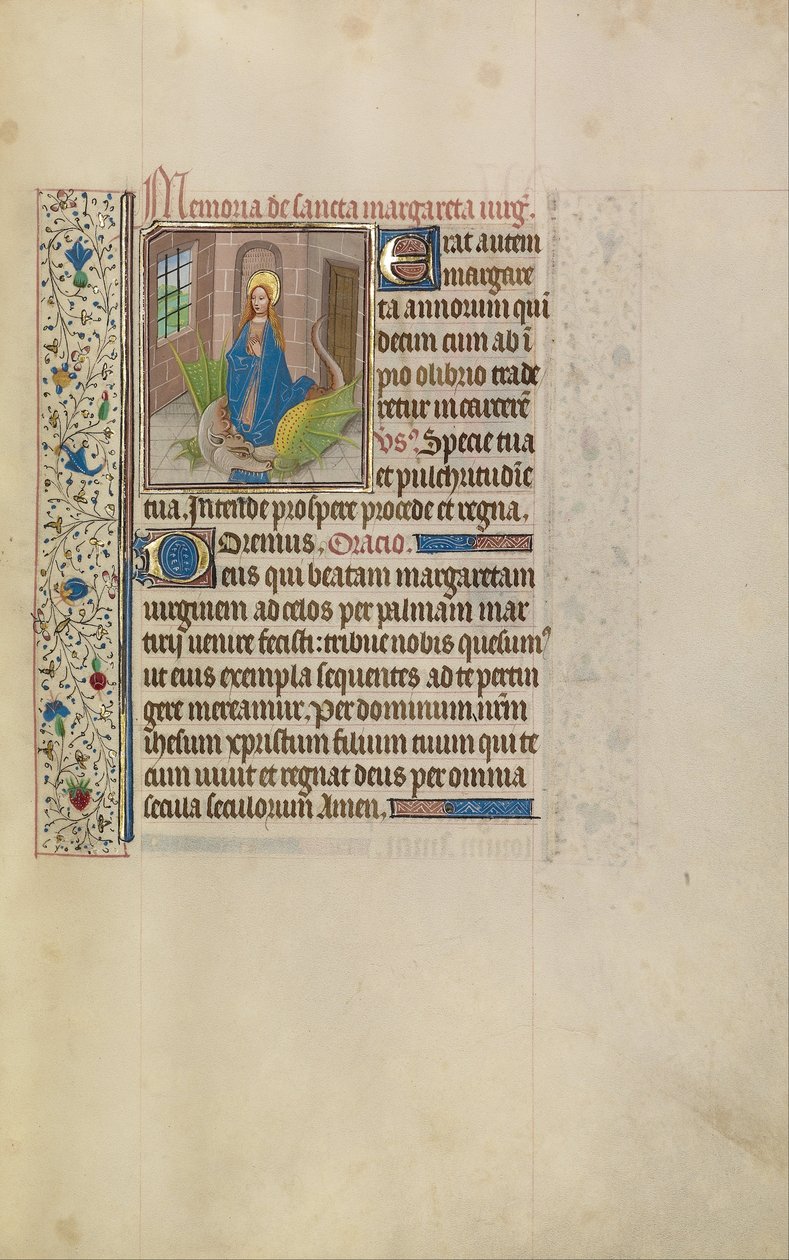 Memoria de sancta margareta uirg̃.
Erat autem
margare
ta annorum qui
decim cum ab ī
pio olibrio trade
retur in carcerē
vs̾ Specie tua
et pulchritudīe
tua. Intende prospere procede et regna.
Oremus. Oracio.
Deus qui beatam margaretam
uirginem ad celos per palmam mar
tirij uenire fecisti: tribue nobis quesumꝰ
ut eius exempla sequentes ad te pertin
gere mereamur. Per dominum nr̄m
ihesum xpristum filium tuum qui te
cum uiuit et regnat deus per omnia
secula seculorum Amen.